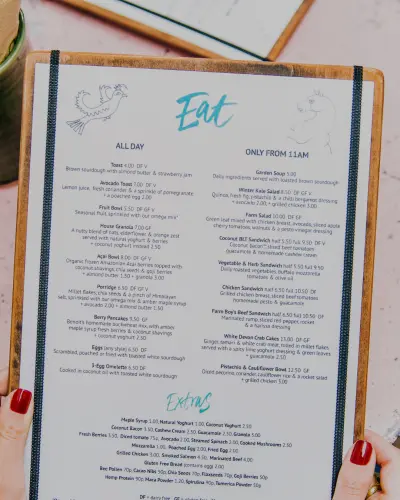 Eat
ALL DAY
Toast 4.00 DF V
Brown sourdough with almond butter & strawberry jam
Avocado Toast 7.00 DF V
Lemon juice, fresh coriander & a sprinkle of pomegranate
+ a poached egg 2.00
Fruit Bowl 5.50 DF GF V
Seasonal fruit, sprinkled with our omega mix
House Granola 7.00 GF
A nutty blend of oats, elderflower & orange zest
served with natural yoghurt & berries
+ coconut yoghurt 2.50
Açai Bowl 8.00 DF V
Organic frozen Amazonian Açai berries topped with
coconut shavings, chia seeds & goji berries
+ almond butter 1.50 + granola 3.00
Porridge 6.50 DF
Millet flakes, chia seeds & a pinch of Himalayan
salt, sprinkled with our omega mix & amber maple syrup
+ avocado 2.00 + almond butter 1.50
Berry Pancakes 9.50 GF
homemade buckwheat mix with amber
maple syrup fresh berries & coconut shavings
+ coconut yoghurt 2.50
Eggs (any style) 6.50 DF
Scrambled, poached or fried with toasted white sourdough
3-Egg Omelette 6.50 DF
Cooked in coconut oil with toasted white sourdough
ONLY FROM 11AM
Garden Soup 5.00
Daily ingredients served with toasted brown sourdough
Winter Kale Salad 8.50 DF GF V
Quinoa, fresh fig, pistachio & a chilli tangerine dressing
+ avocado 2.00 + grilled chicken 3.00
Farm Salad 10.00 GF
Green leaf mixed with chicken breast, avocado, sliced apple
cherry tomatoes, walnuts & a pesto-vinegar dressing
Coconut BLT Sandwich half 5.50 full 9.50 DF V
Coconut 'bacon', sliced beef tomatoes
guacamole & homemade cashew cream
Vegetable & Herb Sandwich half 5.50 full 9.50
Daily roasted vegetables, buffalo mozzarella
tomatoes & olive oil
Chicken Sandwich half 5.50 full 10.50 DF
Grilled chicken breast, sliced beef tomatoes
homemade pesto & guacamole
Farm Boy's Beef Sandwich half 6.50 full 10.50 DF
Marinated rump, sliced red pepper, rocket
& a harissa dressing
White Devon Crab Cakes 13.00 DF GF
Ginger, lemon & white crab meat, rolled in millet flakes
served with a spicy lime yoghurt dressing & green leaves
+ guacamole 2.50
Pistachio & Cauliflower Bowl 12.50 GF
Giant pecorino, coriander, cauliflower rice & a rocket salad
+ grilled chicken 3.00
Extras
Maple Syrup 1.00, Natural Yoghurt 1.00, Coconut Yoghurt 2.50
Coconut Bacon 3.50, Cashew Cream 2.50, Guacamole 2.50, Granola 3.00
Fresh Berries 3.50, Diced tomato 75p, Avocado 2.00, Steamed Spinach 2.00, Cooked Mushrooms 2.50
Mozzarella 1.85, Poached Egg 2.00, Fried Egg 2.50
Grilled Chicken 3.00, Smoked Salmon 4.50, Marinated Beef 4.00
Gluten Free Bread (contains egg) 2.00
Bee Pollen 70p, Cacao Nibs 50p, Chia Seeds 70p, Flaxseeds 70p, Goji Berries 50p
Hemp Protein 90p, Maca Powder 1.20, Spirulina 90p, Turmeric Powder 50p
DF = dairy free